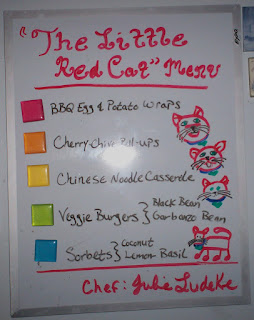 "The Little
Red Cat" Menu
BBQ Egg & Potato Wraps
Cherry Chip Pol-ups
Chinese Noodle Casserole
Veggie Burgers } Black Bean
Garbonzo Bean
Sorbets } Coconut
Lemon Basil
Chef: Julie Ludeke